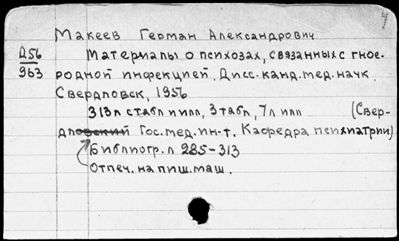 Макеев Герман Александрович
Д56
963
Материалы о психозах, связанных с гное-
родной инфекцией. Дисс. канд. мед. наук.
Свердловск, 1956
313л с табл и илл, 3 табл, 7л илл (Свер-
дловский Гос. мед. ин-т. Кафедра психиатрии)
Библиогр. л 285-313
Отпеч. на пиш. маш.